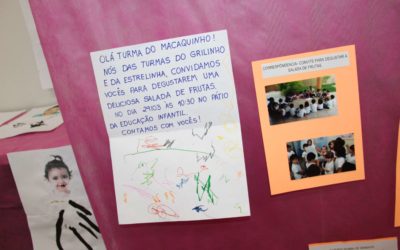 OLÁ TURMA DO MACAQUINHO!
NÓS DAS TURMAS DO GRILINHO
E DA ESTRELINHA, CONVIDAMOS
VOCÊS PARA DEGUSTAREM UMA
DELICIOSA SALADA DE FRUTAS.
NO DIA 29/03 ÀS 10:30 NO PÁTIO
DA EDUCAÇÃO INFANTIL.
CONTAMOS COM VOCÊS!
CORRESPONDÊNCIA: CONVITE PARA DEGUSTAR A
SALADA DE FRUTAS.